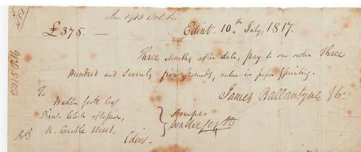 £375 — Edinr 10th July, 1817.
Three Months after date, pay to our order Three
Hundred and Seventy five pounds, value in paper & printing.
James Ballantyne & Co.
To
Walter Scott Esqr
Prinl Clerk of Session,
N. Castle Street,
Edinr.
Accepts
Walter Scott